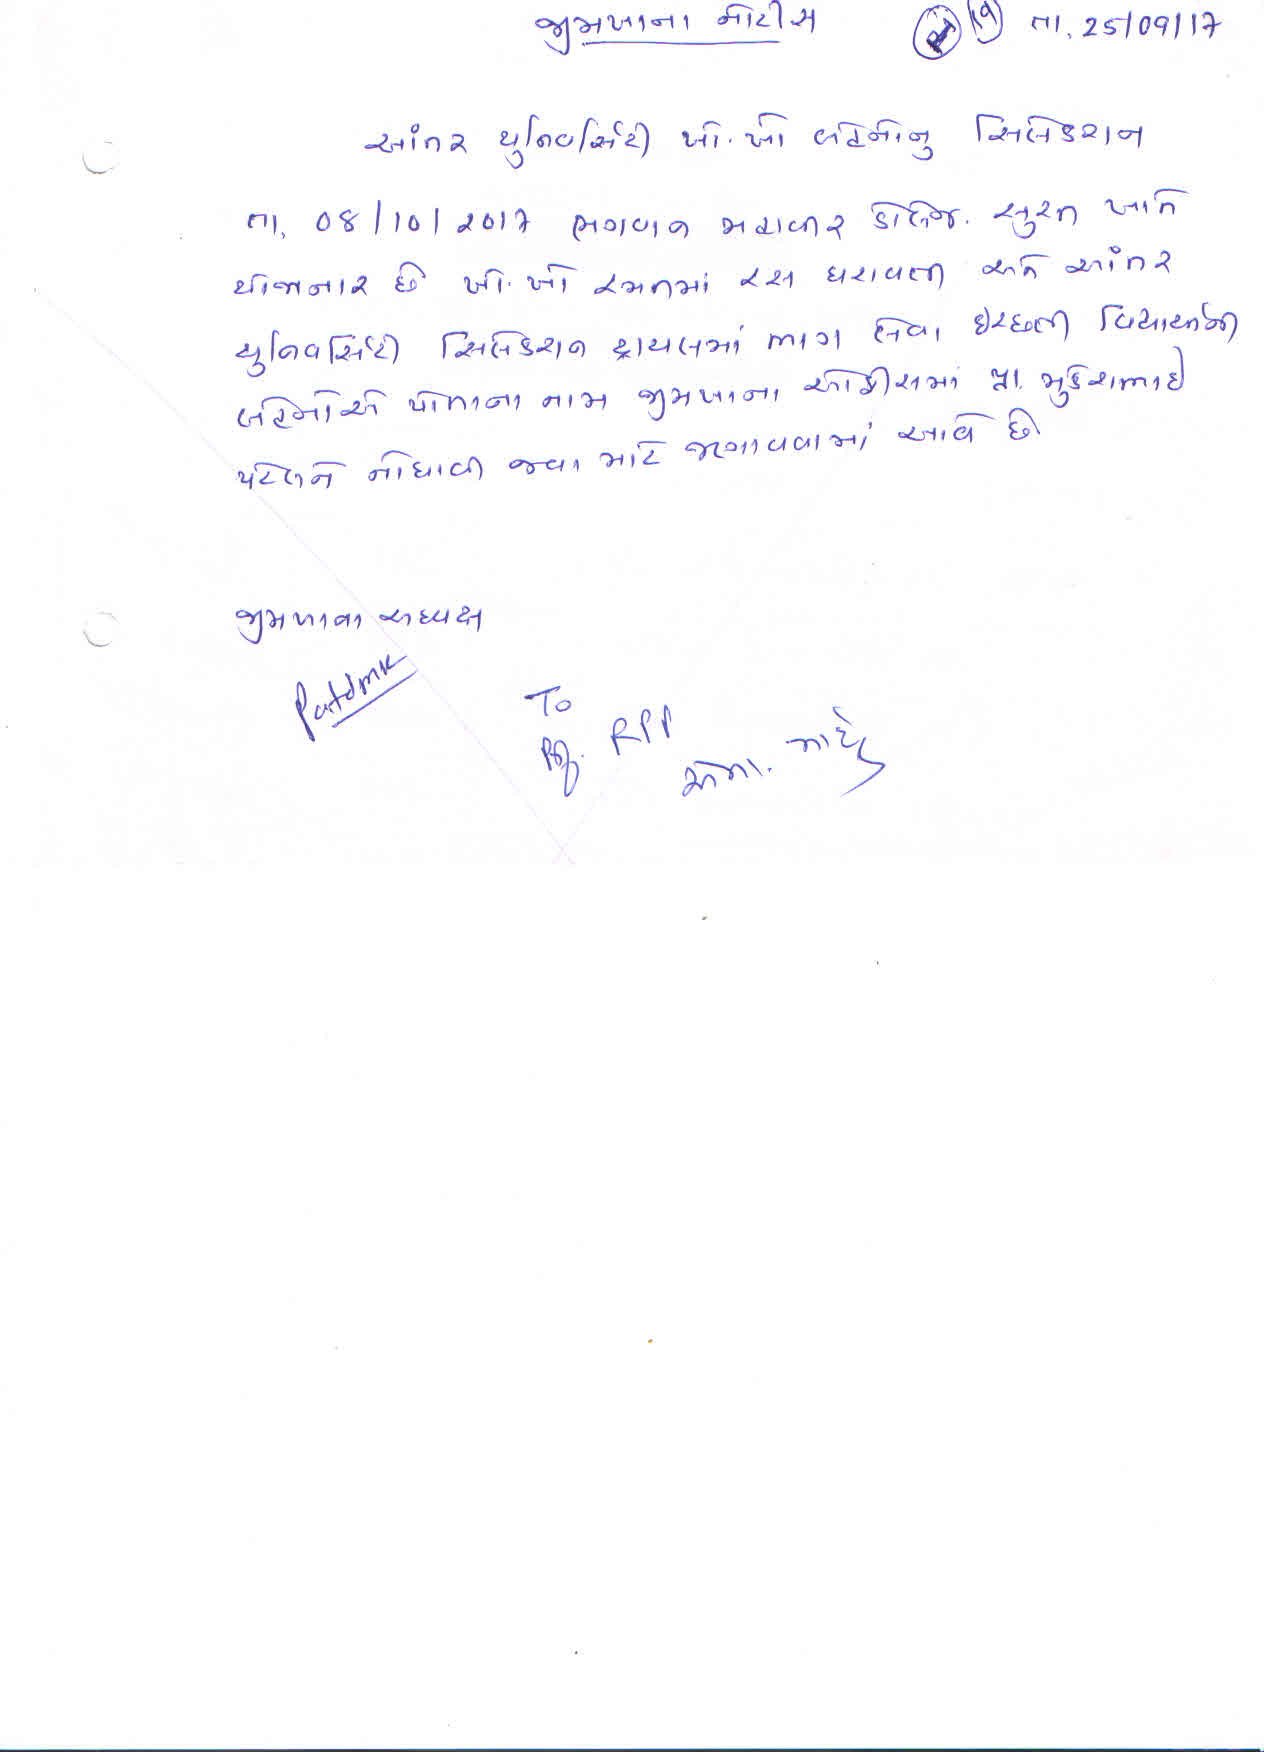 જીમખાના નોટીસ તા. 25/09/17
આંતર યુનિવર્સિટી ખો.ખો બહેનોનુ સિલેકશન
તા. 08/10/2017 ભગવાન મહાવીર કોલેજ. સુરત ખાતે
યોજાનાર છે ખો.ખો રમતમાં રસ ધરાવતી અને આંતર
યુનિવર્સિટી સિલેકશન ટ્રાયલમાં ભાગ લેવા ઈચ્છતી વિદ્યાર્થીની
બહેનોએ પોતાના નામ જીમખાના ઓફીસમાં પ્રા. મુકેશભાઈ
પટેલને નોંધાવી જવા માટે જણાવવામાં આવે છે
જીમખાના અધ્યક્ષ
To
RPP